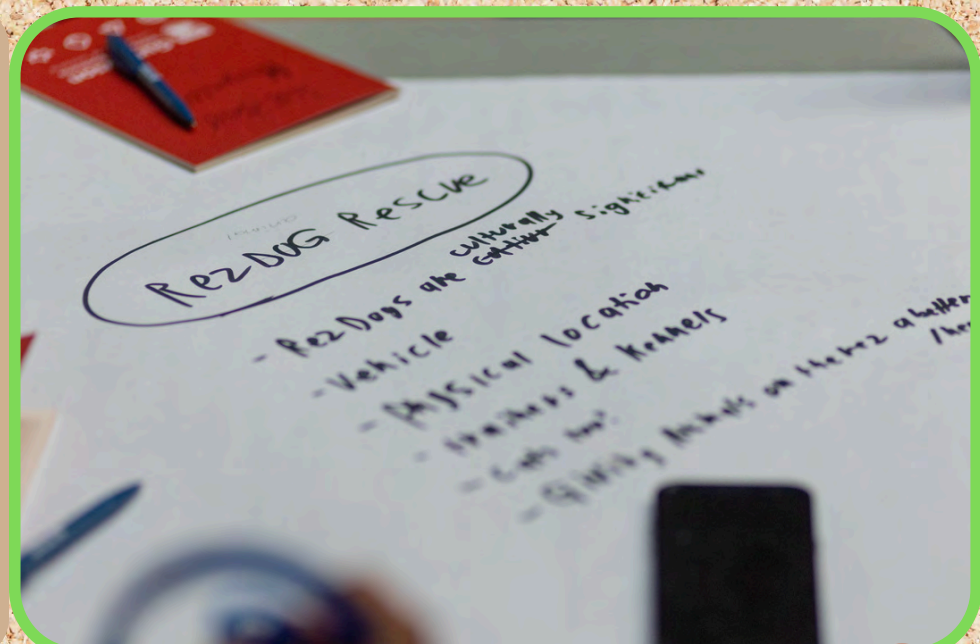 RezDOG RESCUE
- RezDogs are culturally
- Vehicle
- Physical location
- trainers & kennels
- Cats too!
- Giving Animals on the rez a better